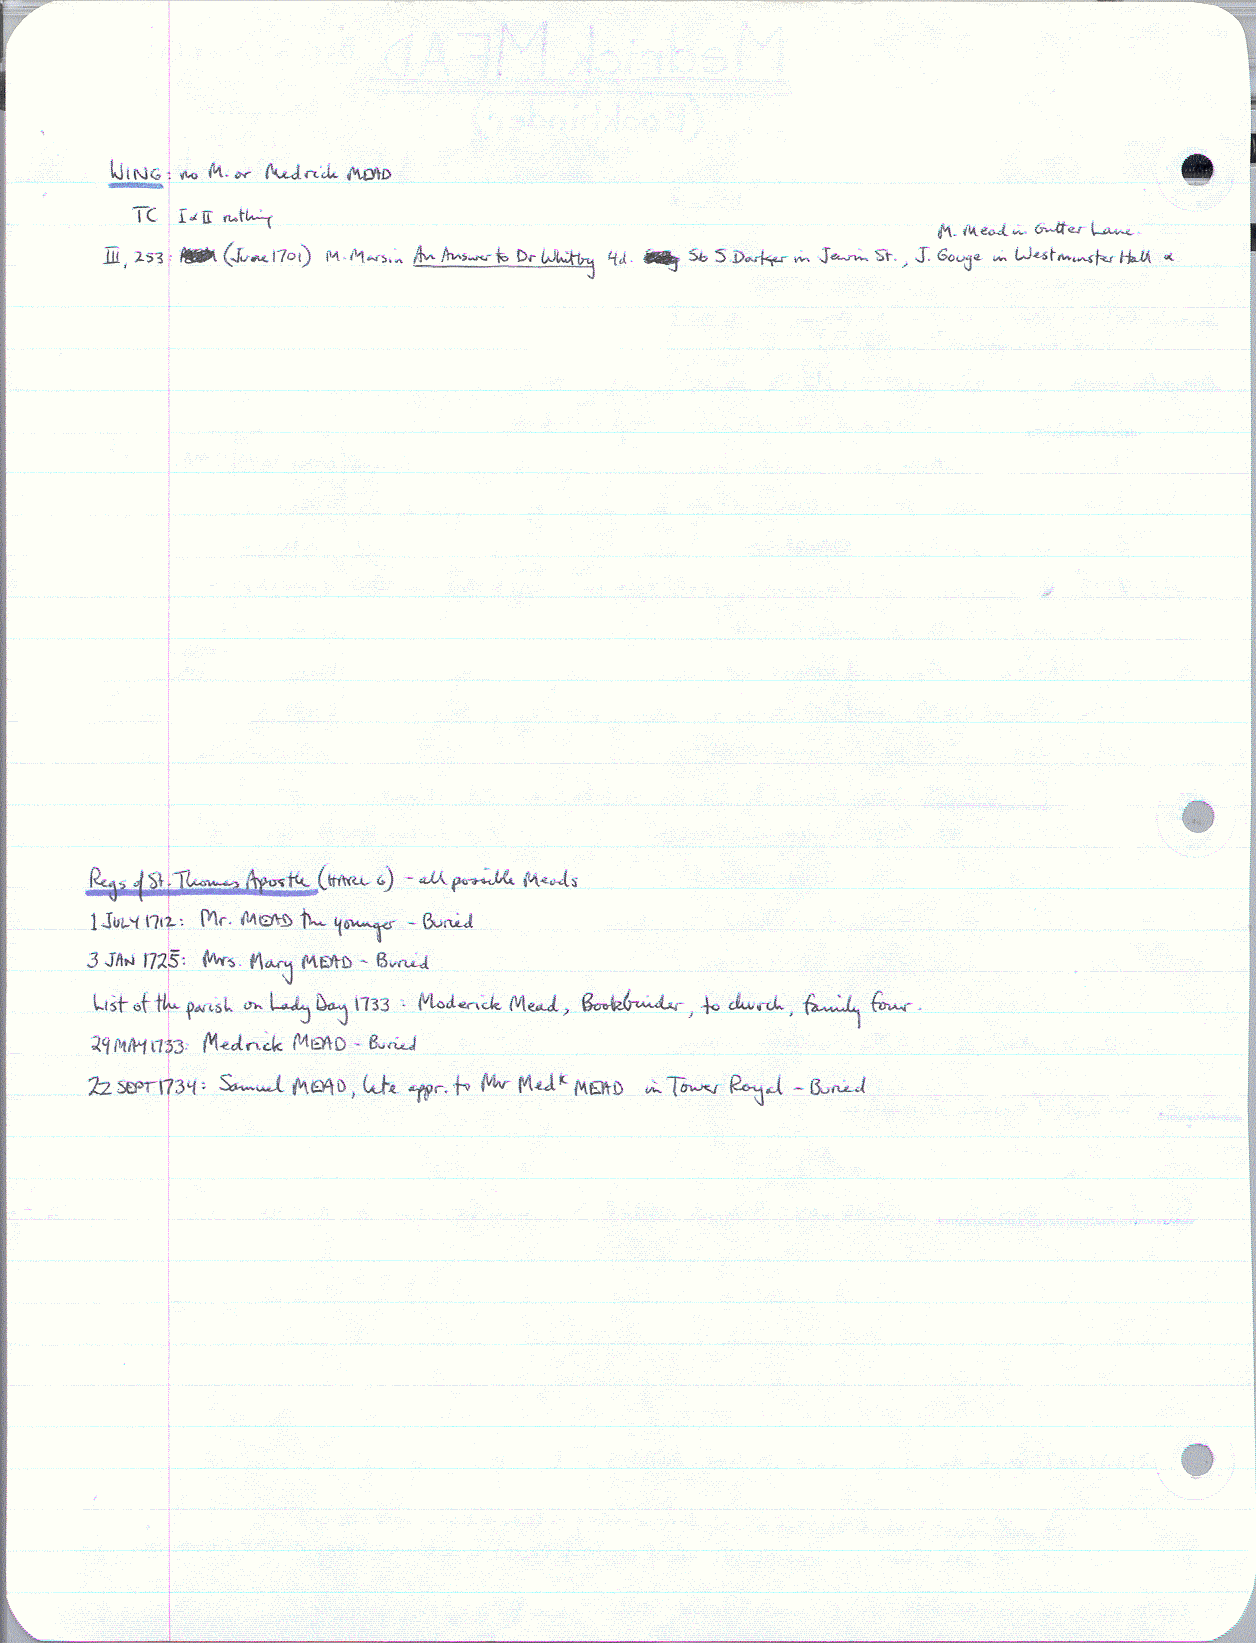 WING: no M. or Medrick MEAD
TC I & II nothing
M. Mead in Gutter Lane.
III, 253: (June 1701) M. Marsin An Answer to Dr Whitby 4d. Sb S Darker in Jewin St., J. Gouge in Westminster Hall &
Regs of St. Thomas Apostle (HARL 6) - all possible Meads
1 JULY 1712: Mr. MEAD the younger - Buried
3 JAN 1725: Mrs. Mary MEAD - Buried
List of the parish on Lady Day 1733: Moderick Mead, Bookbinder, to church, family four.
29 MAY 1733: Medrick MEAD - Buried
22 SEPT 1734: Samuel MEAD, late appr. to Mr Medk MEAD in Tower Royal - Buried